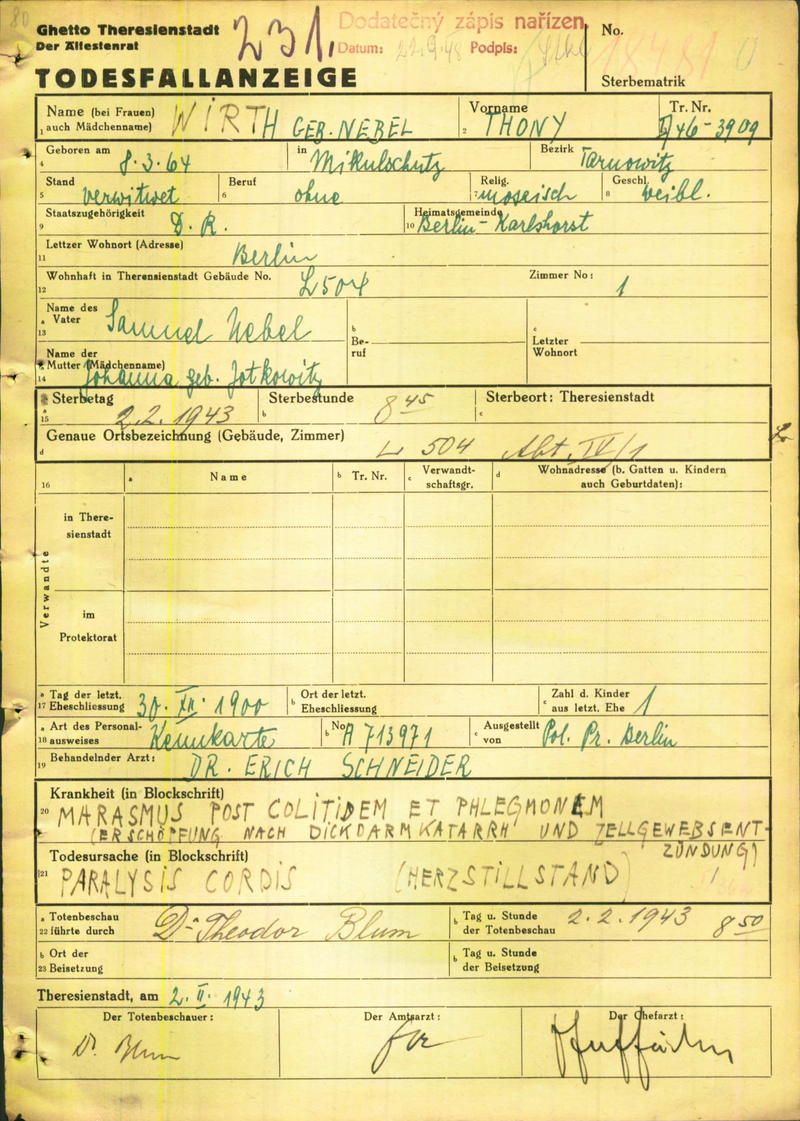 80
Ghetto Theresienstadt
Der Ältestenrat
231.
Dodatečný zápis nařízen
Datum: 22.9.48 Podpis:
No.
TODESFALLANZEIGE
Sterbematrik
Name (bei Frauen) WIRTH GEB. NEBEL Vorname THONY Tr. Nr. I/46-3909
1 auch Mädchenname) 2
Geboren am 8.3.64 in Mikulschutz Bezirk Tarnowitz
4
Stand verwitwet Beruf ohne Relig. mosaisch Geschl. weibl.
5 6 7 8
Staatszugehörigkeit D. R. Heimatsgemeinde Berlin-Karlshorst
9 10
Lettzer Wohnort (Adresse) Berlin
11
Wohnhaft in Theresienstadt Gebäude No. L504 Zimmer No: 1
12
Name des
a Vater Samuel Nebel b Be-ruf c Letzter Wohnort
13
Name der
Mutter (Mädchenname) Johanna geb. Jotkowitz
14
Sterbetag 2.2.1943 Sterbestunde 8 45 Sterbeort: Theresienstadt
15 b c
Genaue Ortsbezeichnung (Gebäude, Zimmer) L 504 Abt. IV/1
d
16 a Name b Tr. Nr. c Verwandt-schaftsgr. d Wohnadresse (b. Gatten u. Kindern auch Geburtdaten):
Verwandte
in There-
sienstadt
im
Protektorat
a Tag der letzt. Eheschliessung 30. XII. 1900 b Ort der letzt. Eheschliessung c Zahl d. Kinder aus letzt. Ehe 1
17
a Art des Personal-ausweises Kennkarte b No A 713971 c Ausgestellt von Pol. Pr. Berlin
18
Behandelnder Arzt: DR. ERICH SCHNEIDER
19
Krankheit (in Blockschrift)
20 MARASMUS POST COLITIDEM ET PHLEGMONEM
(ERSCHÖPFUNG NACH DICKDARMKATARRH UND ZELLGEWEBSENT-
ZÜNDUNG)
Todesursache (in Blockschrift)
21 PARALYSIS CORDIS (HERZSTILLSTAND)
a Totenbeschau Dr Theodor Blum b Tag u. Stunde 2.2.1943 8 50
22 führte durch der Totenbeschau
b Ort der b Tag u. Stunde
23 Beisetzung der Beisetzung
Theresienstadt, am 2. II. 1943
Der Totenbeschauer: Der Amtsarzt: Der Chefarzt:
Dr. Blum